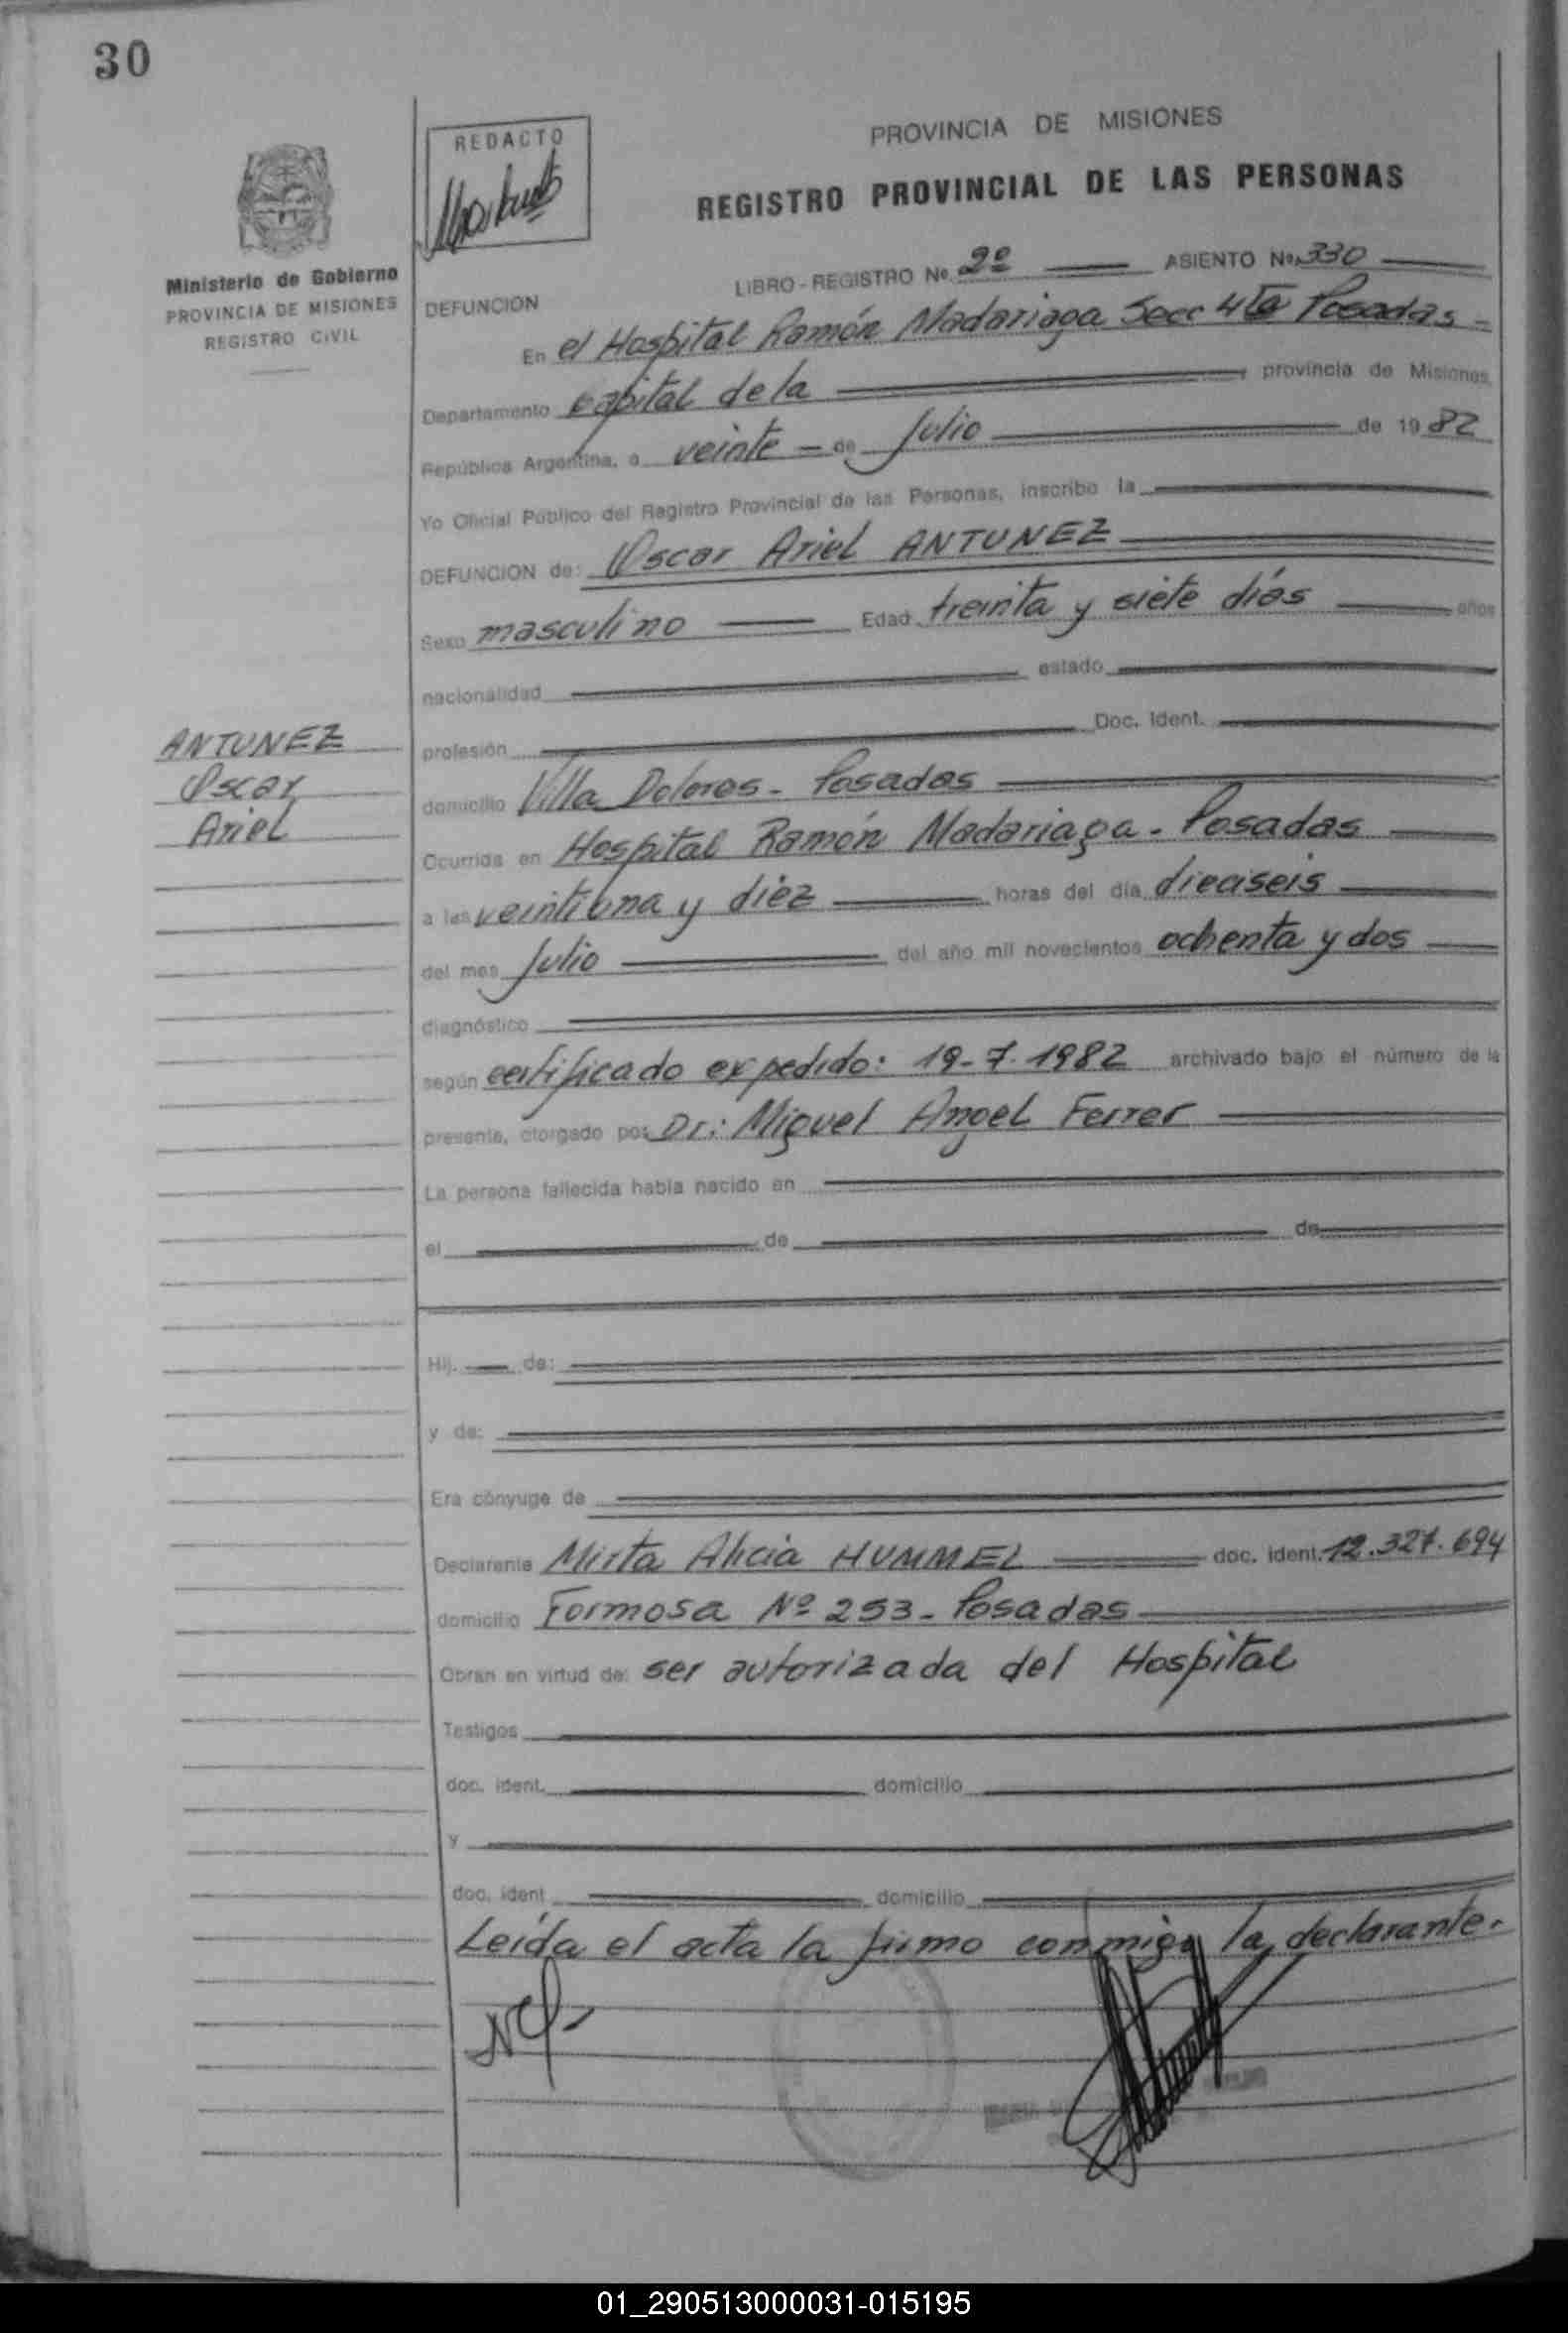 30
REDACTO
PROVINCIA DE MISIONES
REGISTRO PROVINCIAL DE LAS PERSONAS
Ministerio de Gobierno
PROVINCIA DE MISIONES
REGISTRO CIVIL
LIBRO - REGISTRO No. 2º ASIENTO No. 330
DEFUNCION
En el Hospital Ramón Madariaga Secc 4ta Posadas -
Departamento capital de la provincia de Misiones,
República Argentina, a veinte - de Julio de 1982
Yo Oficial Público del Registro Provincial de las Personas, inscribo la
DEFUNCION de: Oscar Ariel ANTUNEZ
Sexo masculino Edad treinta y siete días años
nacionalidad estado
profesión Doc. Ident.
ANTUNEZ
Oscar
Ariel
domicilio Villa Dolores - Posadas
Ocurrida en Hospital Ramón Madariaga - Posadas
a las veintiuna y diez horas del día dieciseis
del mes Julio del año mil novecientos ochenta y dos
diagnóstico
según certificado expedido: 19-7-1982 archivado bajo el número de la
presente, otorgado por Dr: Miguel Angel Ferrer
La persona fallecida había nacido en
el de de
Hij. de:
y de:
Era cónyuge de
Declarante Mirta Alicia HUMMEL doc. ident. 12.327.694
domicilio Formosa Nº 253 - Posadas
Obran en virtud de: ser autorizada del Hospital
Testigos
doc. ident. domicilio
y
doc. ident domicilio
Leída el acta la firmo conmigo la declarante.
01_290513000031-015195